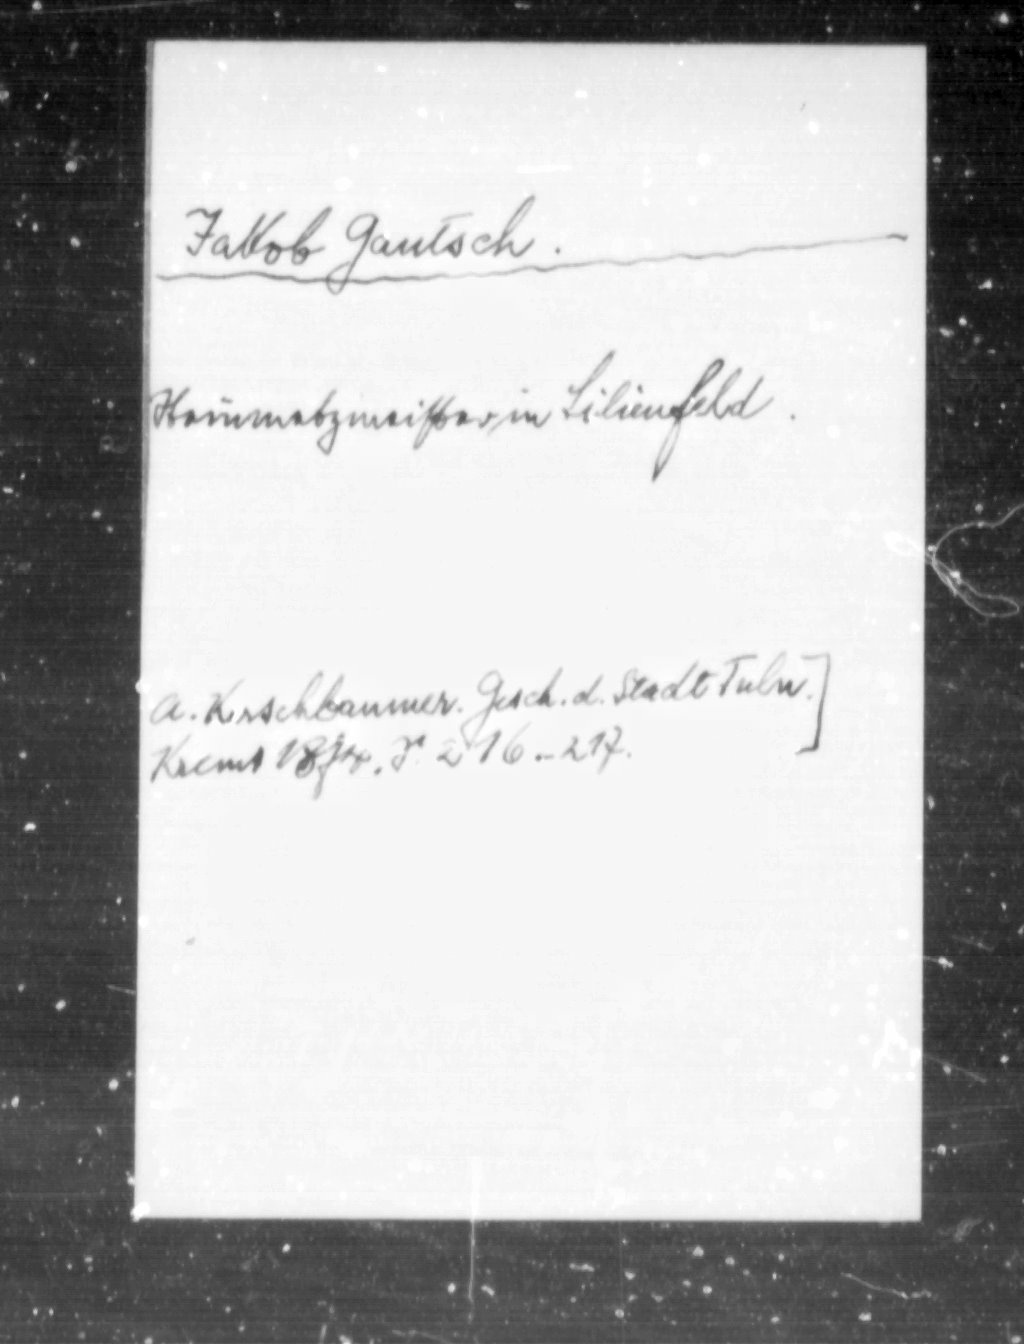 Jakob Gautsch.
Steinmetzmeister in Lilienfeld.
A. Kerschbaumer. Gesch. d. Stadt Tuln.]
Krems 18 216–217.